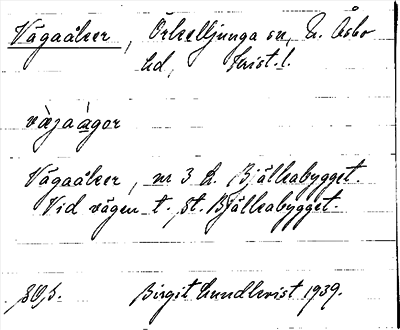 Vägaåker, Örkelljunga sn, N. Åsbo
hd, Krist. l.
vàgaàgor
Vägaåker, nr 3 L. Bjälkabygget.
Vid vägen t. St. Bjälkabygget
Birgit Lundkvist 1939.